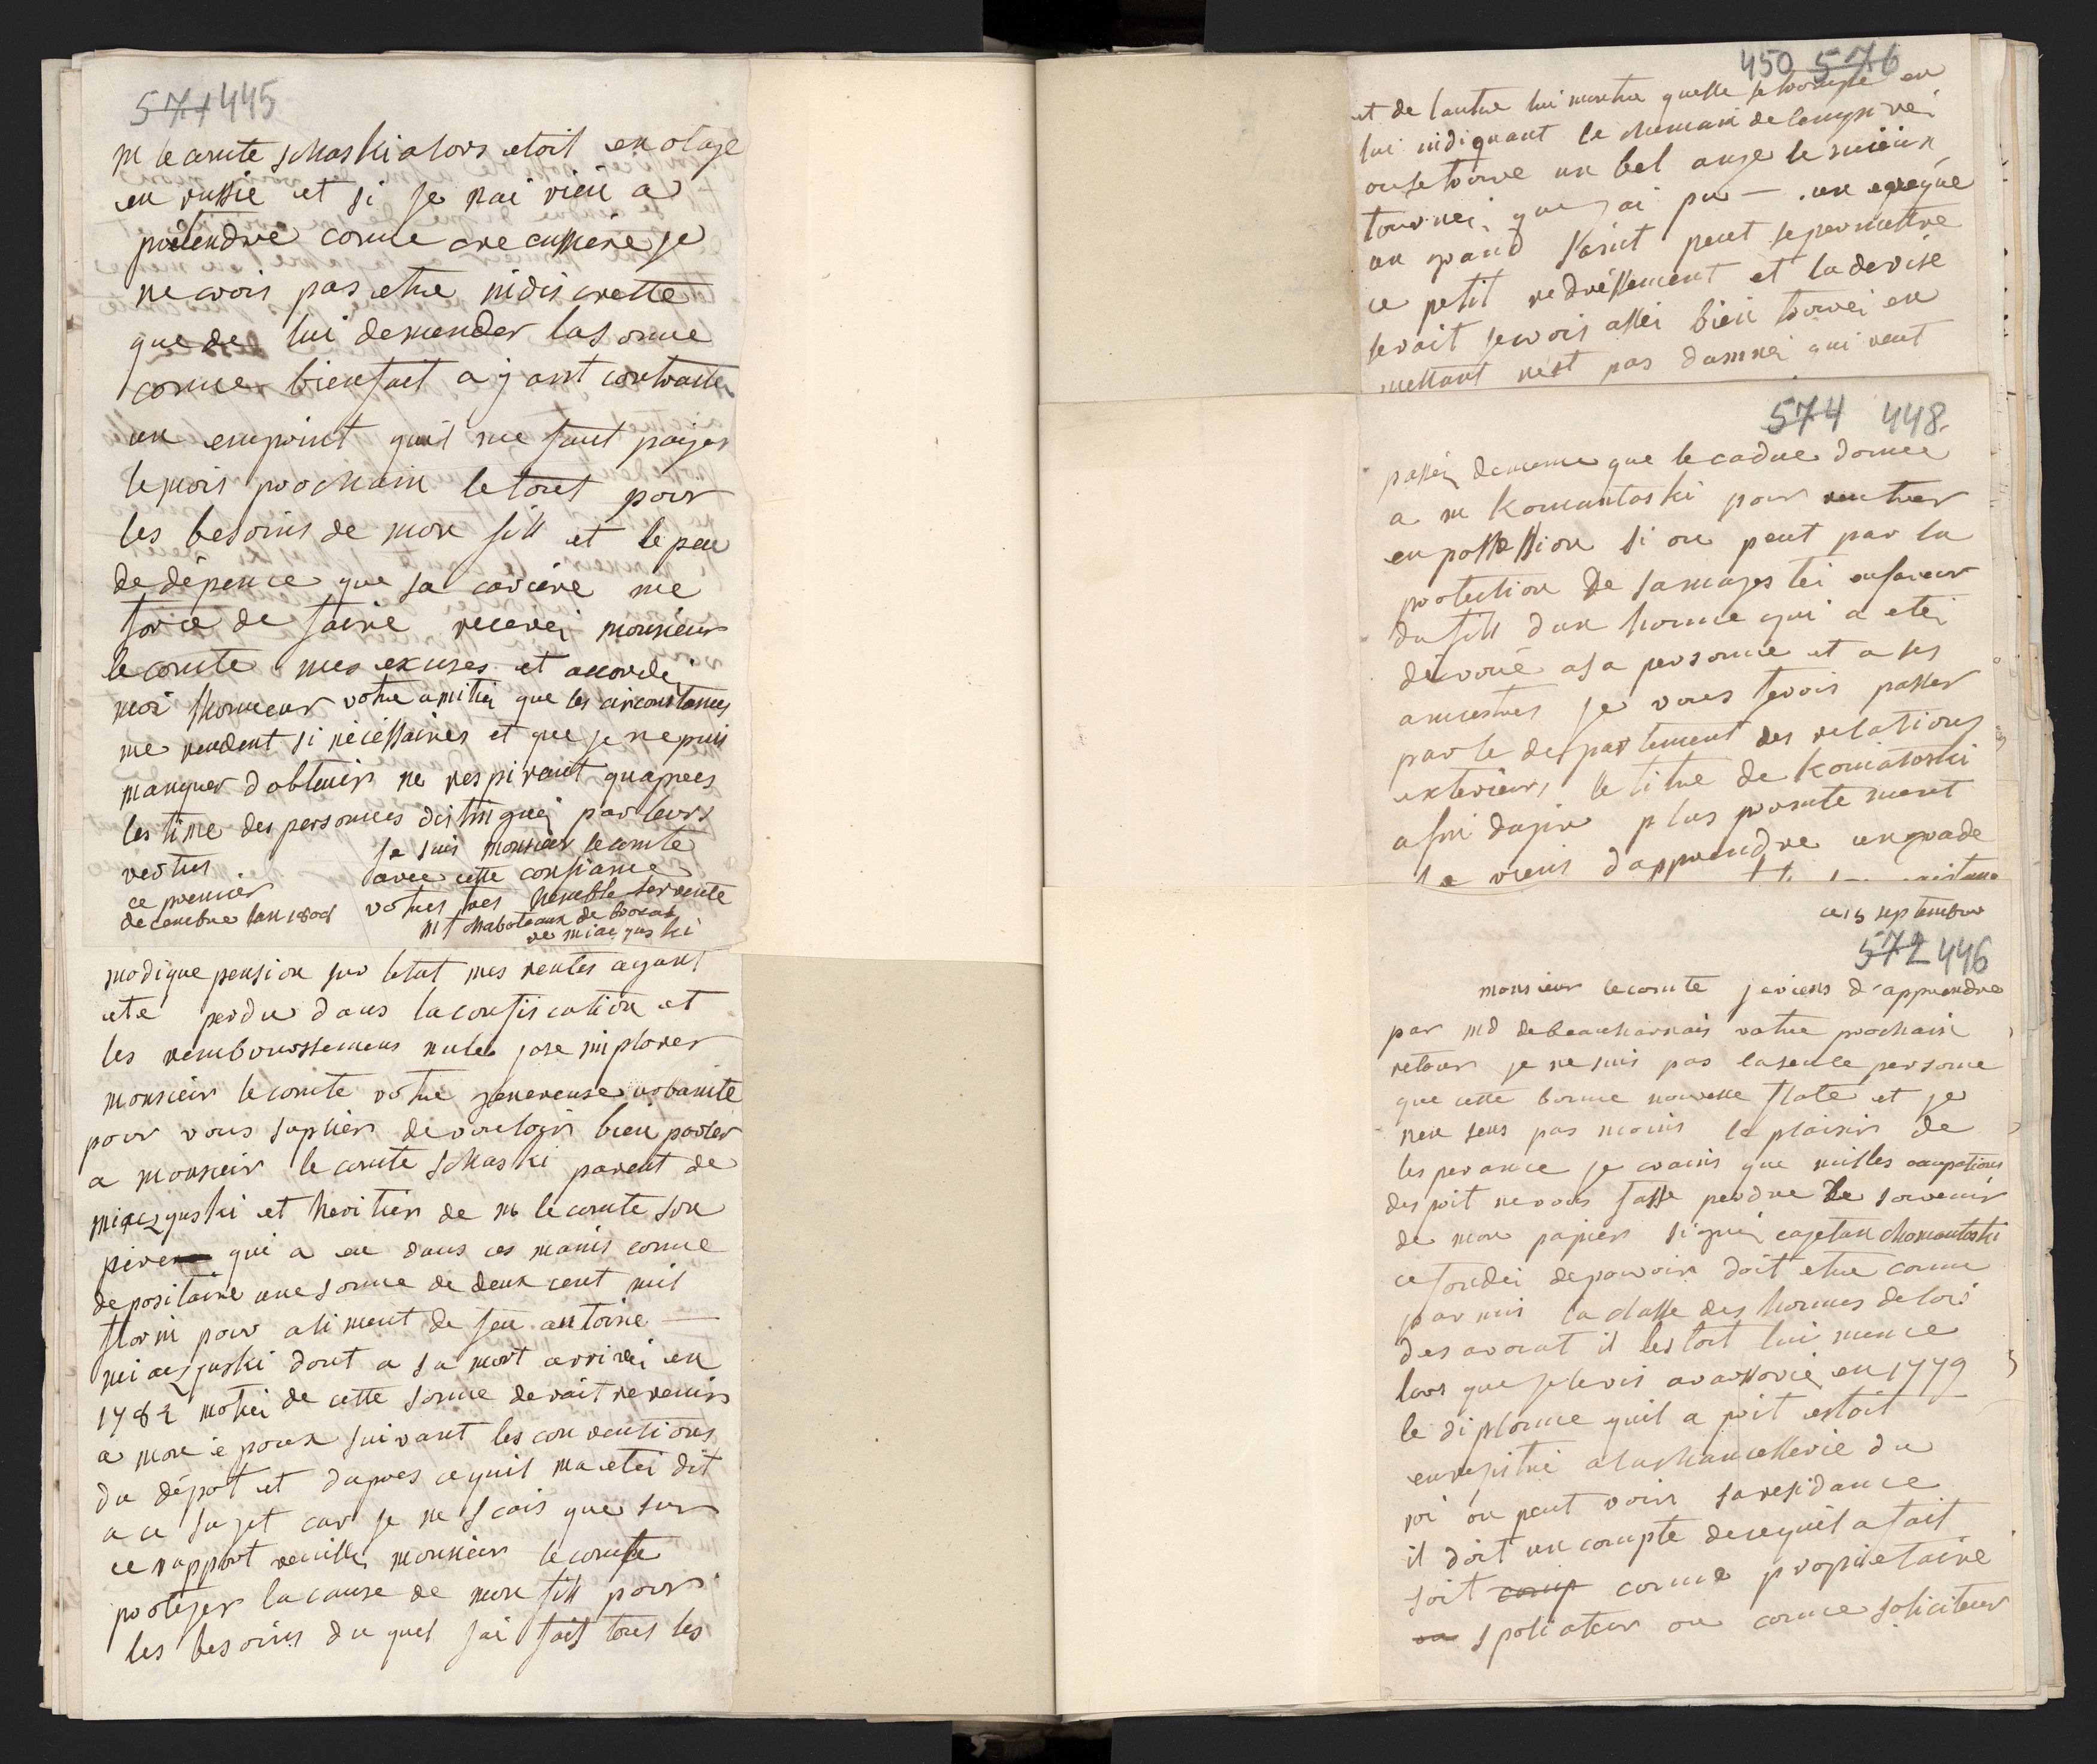 571 445
M le comte scHasKi alors etoit en otage
en russie et si je nai rien a
pretendre comme creanciere je
ne crois pas etre indiscrette
que de lui demender la some
come bienfait ayant contracter
un emprint quil me faut paiyer
le mois prochain le tout pour
les besoins de mon fill et le peu
de dépence que sa cariere me
force de faire recevei monsieur
le comte mes excuses et accordei
moi lhonneur votre amitiei que les circonstances
me rendent si nécéssaires et que je ne puis
manquer dobtenir ne respirant quaprees
lestime des personnes distinguei par leurs
vertus
je suis monsieur le comte
avec cette confiance
votres tres humble servente
ce premier
decembre lan 1808
M T chaboteaux de
de miaczynski
modique pension sur letat mes rentes ayant
ete perdu dans la confiscation et
les remboursemens nules jose implorer
monsieur le comte votre genereuse urbanite
pour vous suplier de vouloir bien parler
a monsieur le comte scHasKi parent de
miaczynski et heritier de M le comte son
pere qui a eu dans ces mains comme
depositaire une somme de deux cent mil
florin pour aliment de feu antoine
miaczynski dont a sa mort arrivei en
1782 motiei de cette somme devait revenir
a mon époux suivant les conventions
du dépot et dapres ce quil ma etei dit
a ce sujet car je ne scais que sur
ce rapport veuillei monsieur le comte
proteger la cause de mon fill pour
les besoins du quel jai fait tous les
450 576
et de lautre lui montre quelle se trompe en
lui indiquant le chemain de lempirei
ou se trouve un bel ange le mieux
tournei que jai pu — . un eveque
un grand saint peut se permettre
ce petit redréssement et la devise
serait je crois assei bien trouvei en
mettant nest pas damnei qui veut
574 448
passei de meme que le cadre donnee
a M Komantoski pour rentrer
en possession si on peut par la
protection de sa majestei en faveur
du fill dun homme qui a etei
dévoué a sa personne et a ses
ancestres je vous ferois passer
par le departement des relations
exterieurs le titre de Komatoski
afin dagir plus promtement
je viens dapprendre un grade
ce 13 septembre
572 446
monsieur le comte je viens d'apprendre
par md de beauharnais votre prochain
retour je ne suis pas la seule persone
que cette bonne nouvelle flate et je
nen sens pas moins le plaisir de
lesperance je crains que milles occupations
desprit ne vous fasse perdre le souvenir
de mon papier signei cajetan chomontoski
ce fondei de pouvoir doit etre connu
parmis la classe des hommes de loi
des avocat il lestoit lui meme
lors que je le vis a varsovie en 1779
le diplome quil a prit estoit
enregistré a la chancellerie du
roi on peut voir sa residance
il doit un compte de ce quil a fait
soit comp comme proprietaire
ou spoliateur ou comme soliciteur